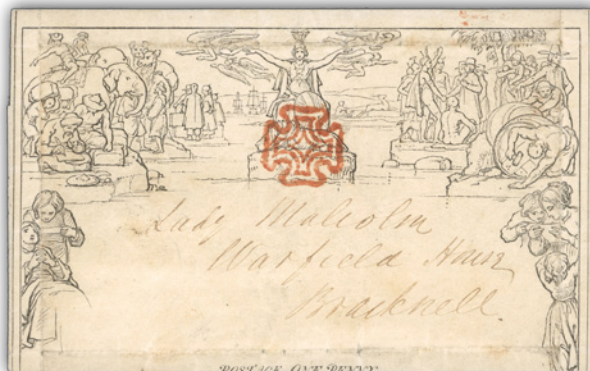 Lady Malcolm
Warfield House
Bracknell
POSTAGE ONE PENNY